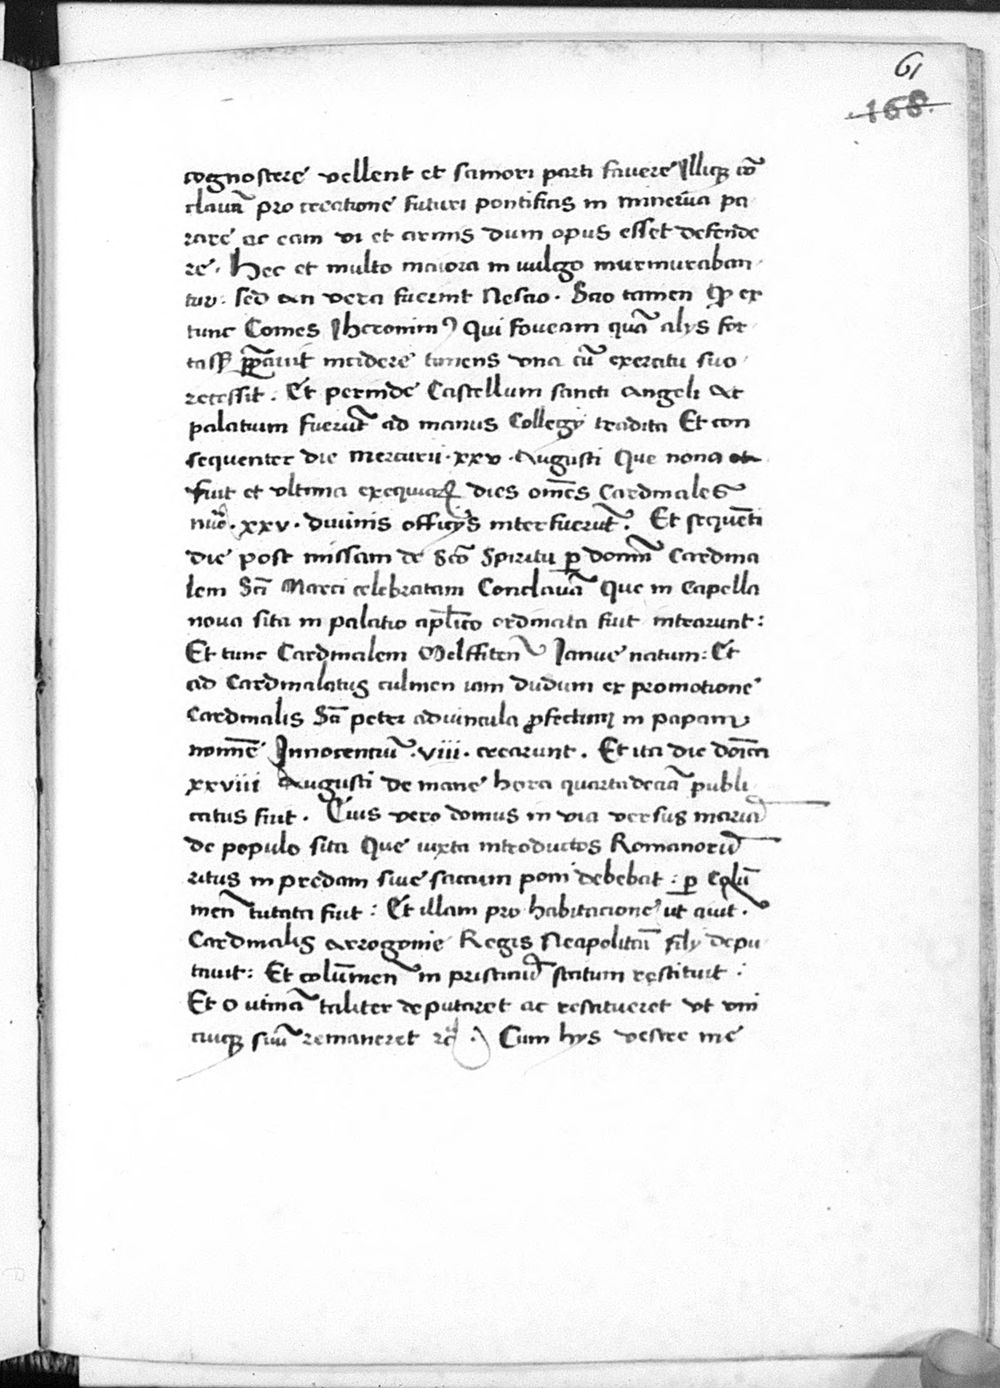 61
168.
cognoscere vellent et saniori parti favere Illicq; cō
clavā pro creatione futuri pontificis in minerva pa
rare ac eam vi et armis dum opus esset defende
re. Hec et multo maiora in vulgo murmuraban
tur: sed an vera fuerint Nescio. Scio tamen qp ex
tunc Comes Iheronimꝰ qui foveam quā alijs for
tass ꝑꝑavit incidere timens una cū exercitu suo
recessit. Et perinde Castellum sancti Angeli Ac
palatium fuerūt ad manus Collegij tradita Et con
sequenter die mercurii. xxv. Augusti Que nona
fuit et ultima exequiaꝝ dies om̄es Cardinales
nūo. xxv. divinis officijs interfuerūt. Et sequēti
die post missam de Scō Spiritu ꝑ domīn Cardina
lem Scī Marci celebratam Conclavā Que in Capella
nova sita in palatio aplico ordinata fuit intrarunt:
Et tunc Cardinalem Melffiten Ianue natum: Et
ad Cardinalatus culmen iam dudum ex promotione
Cardinalis Scī petri advincula ꝓfectum in papam
nomīe Innocentiū. viii. crearunt. Et ita die dōica
xxviiii Augusti de mane hora quartadeciā publi
catus fuit. Cuius vero domus in via versus mariā
de populo sita Que iuxta introductos Romanorū
ritus in predam sive saccum poni debebat: ꝑ Colū
men tutata fuit: Et illam pro habitacione ut aiūt.
Cardinalis Arrogonie Regis Neapolitāi filij depu
tavit: Et colūmen in pristinū statum restituit:
Et O utinā taliter deputaret ac restitueret ut uni
cuiq; suū remaneret rc. Cum hijs vestre me